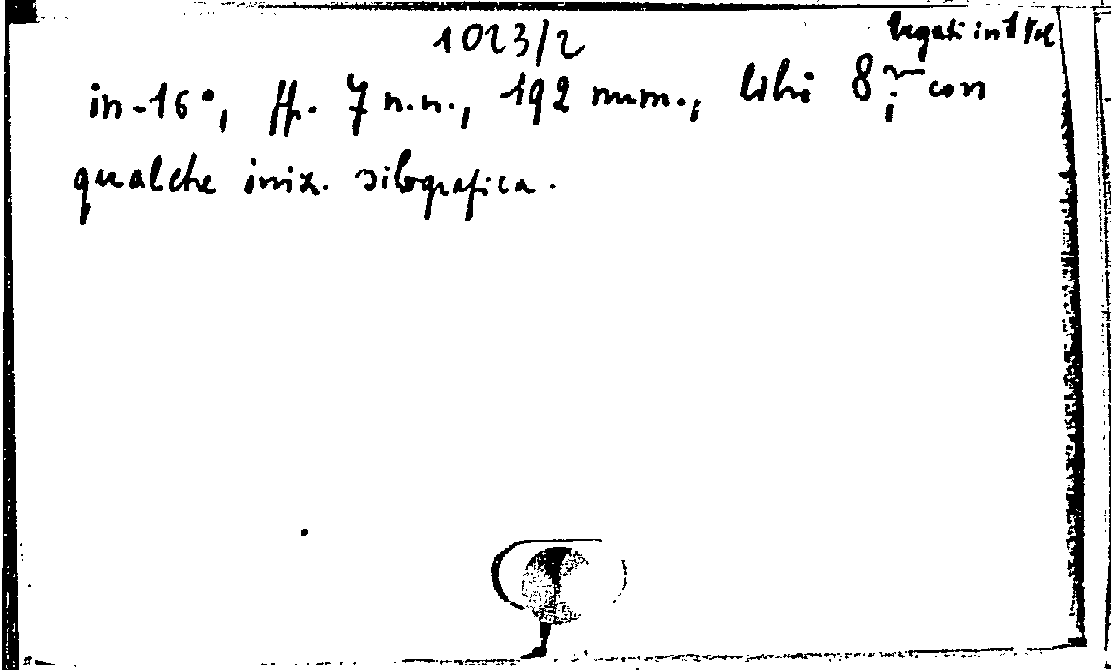 1023/2
legati in 1 vol
in-16°, ff. 7 n.n., 192 num., libri 8; con
qualche iniz. silografica.